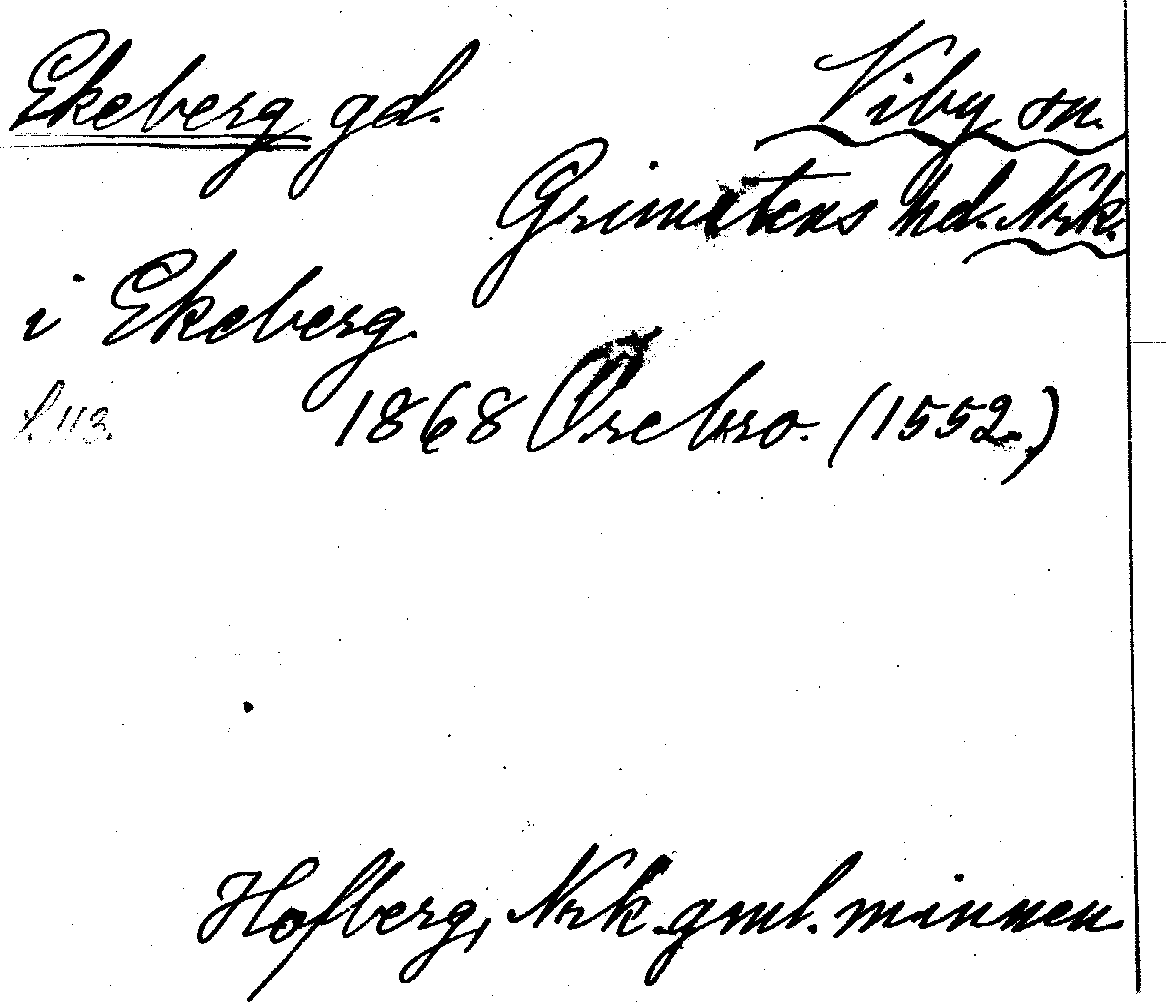 Ekeberg gd. Viby sn.
Grimstens hd. Nrk.
i Ekeberg.
s. 43. 1868 Örebro. (1552.)
Hofberg, Nrk. gml. minnen